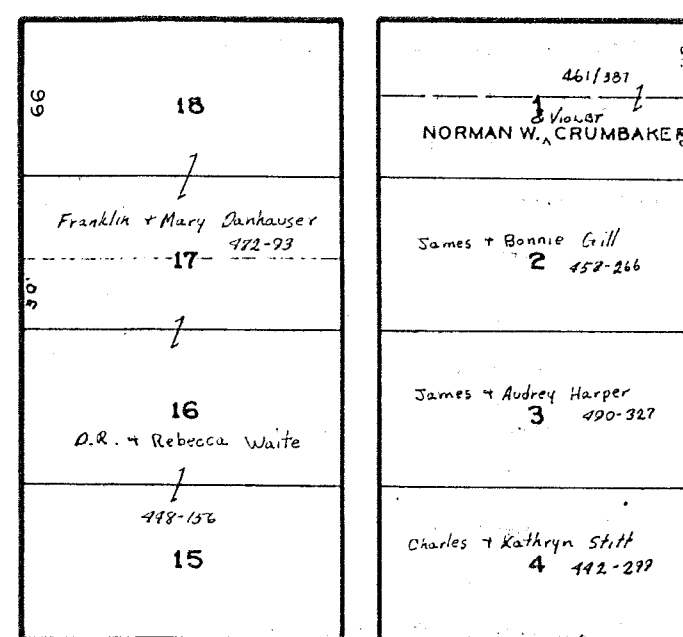 66
18
Franklin + Mary Danhauser
472-93
17
30'
16
D.R. + Rebecca Waite
448-156
15
461/381
1
& Violet
NORMAN W. ^ CRUMBAKER
James + Bonnie Gill
2
458-266
James + Audrey Harper
3
490-327
Charles + Kathryn Stitt
4
442-299